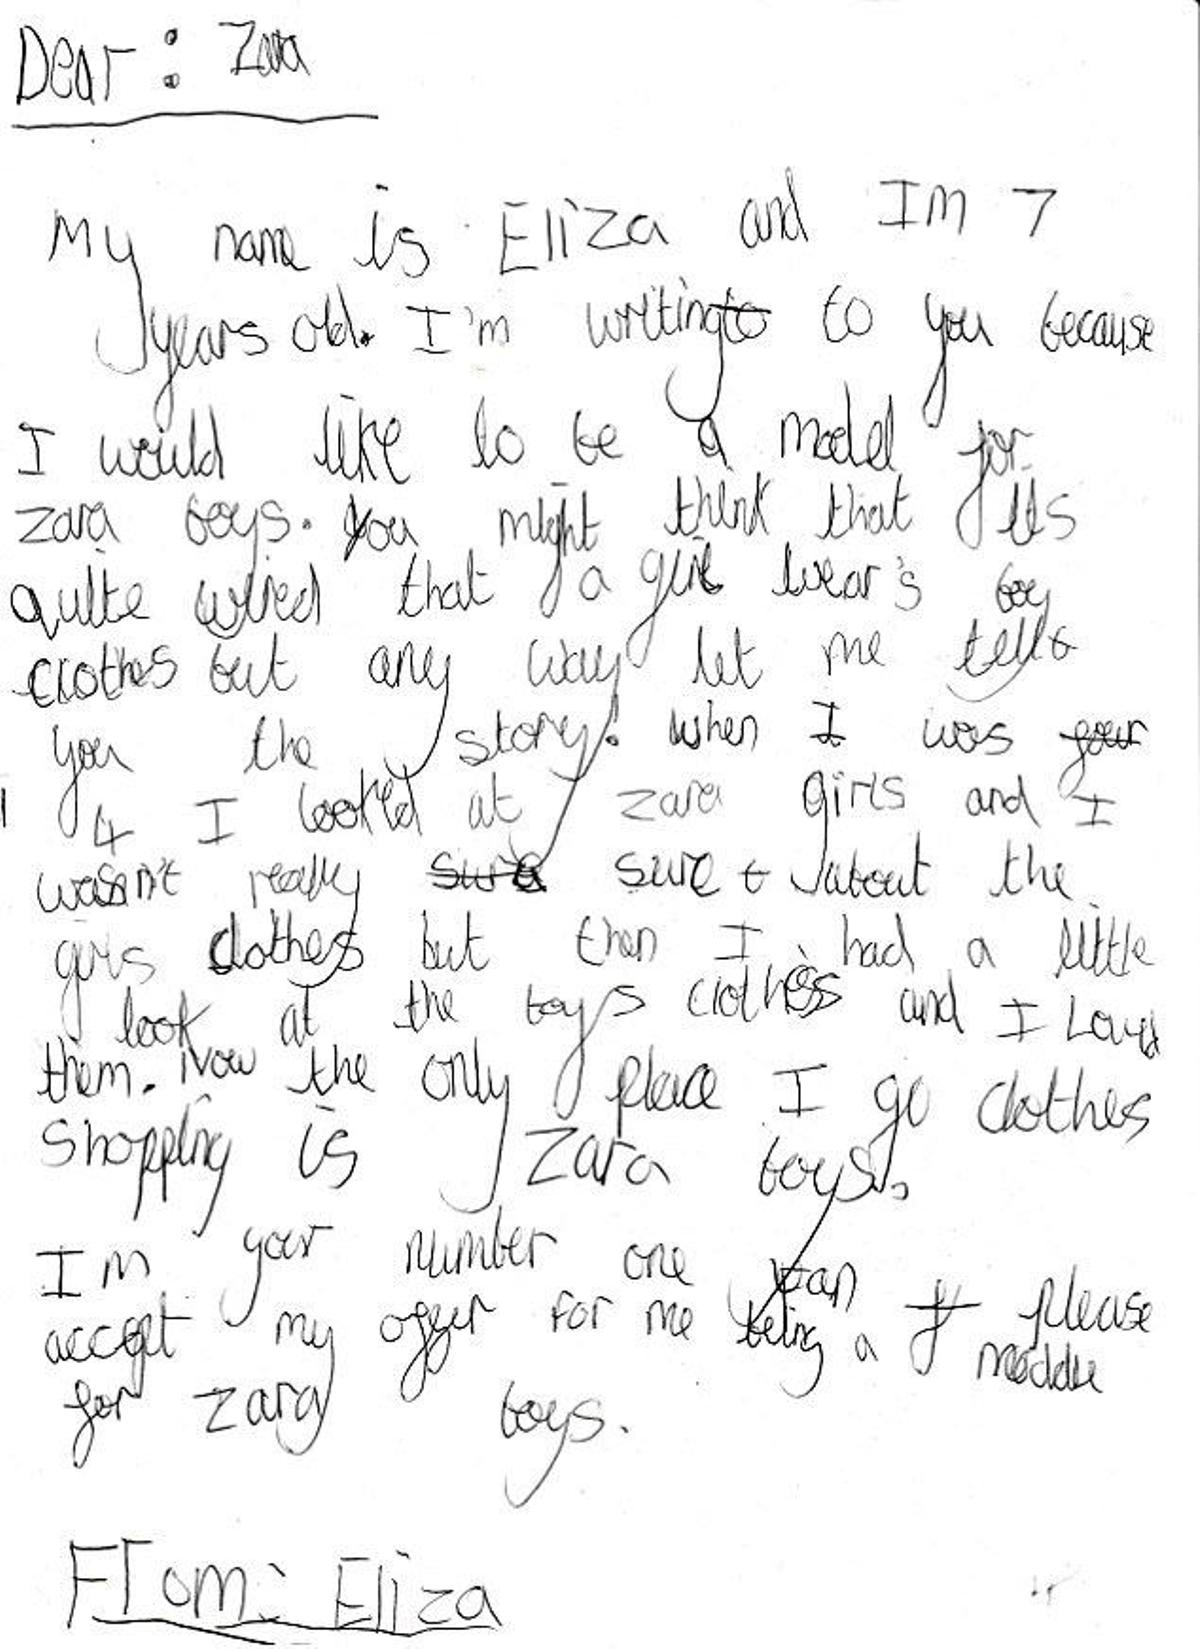 Dear: Zara
My name is Eliza and Im 7
years old. I'm writing to you because
I would like to be a model for
zara boys. You might think that its
quite wired that a girl wear's boy
clothes but any way let me tell
you the story. when I was
4 I looked at zara girls and I
wasn't really sure about the
girls clothes but then I had a little
look at the boys clothes and I Loved
them. Now the only place I go clothes
shopping is Zara boys.
Im your number one fan please
accept my offer for me being a moddle
for zara boys.
From: Eliza